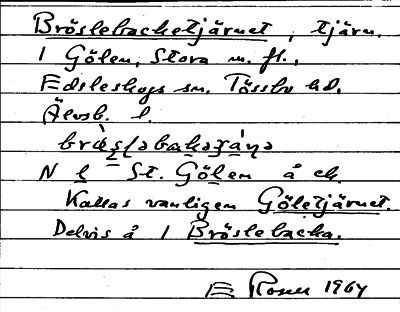 Bröslebacketjärnet, tjärn.
1 Gölen, Stora m. fl.,
Edsleskogs sn. Tössbo hd,
Älvsb. l.
N l St. Gölen å ek.
Kallas vanligen Göletjärnet.
Delvis å 1 Bröslebacka.
E Rosell 1964